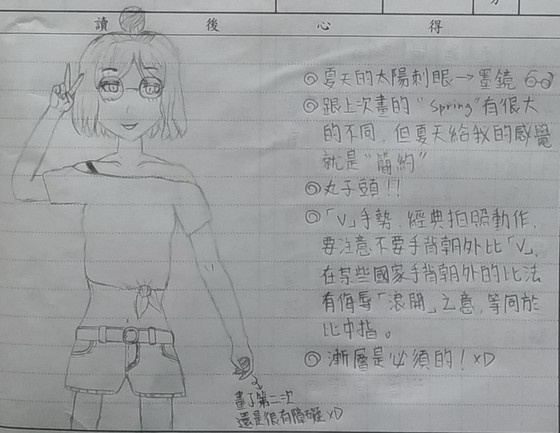 分
讀後心得
◎夏天的太陽刺眼→墨鏡
◎跟上次畫的“spring”有很大
的不同,但夏天給我的感覺
就是“簡約”
◎丸子頭!!
◎「V」手勢,經典拍照動作,
要注意不要手背朝外比「V」,
在某些國家手背朝外的比法
有侮辱「滾開」之意,等同於
比中指。
◎漸層是必須的!XD
畫了第二次
還是很有障礙XD